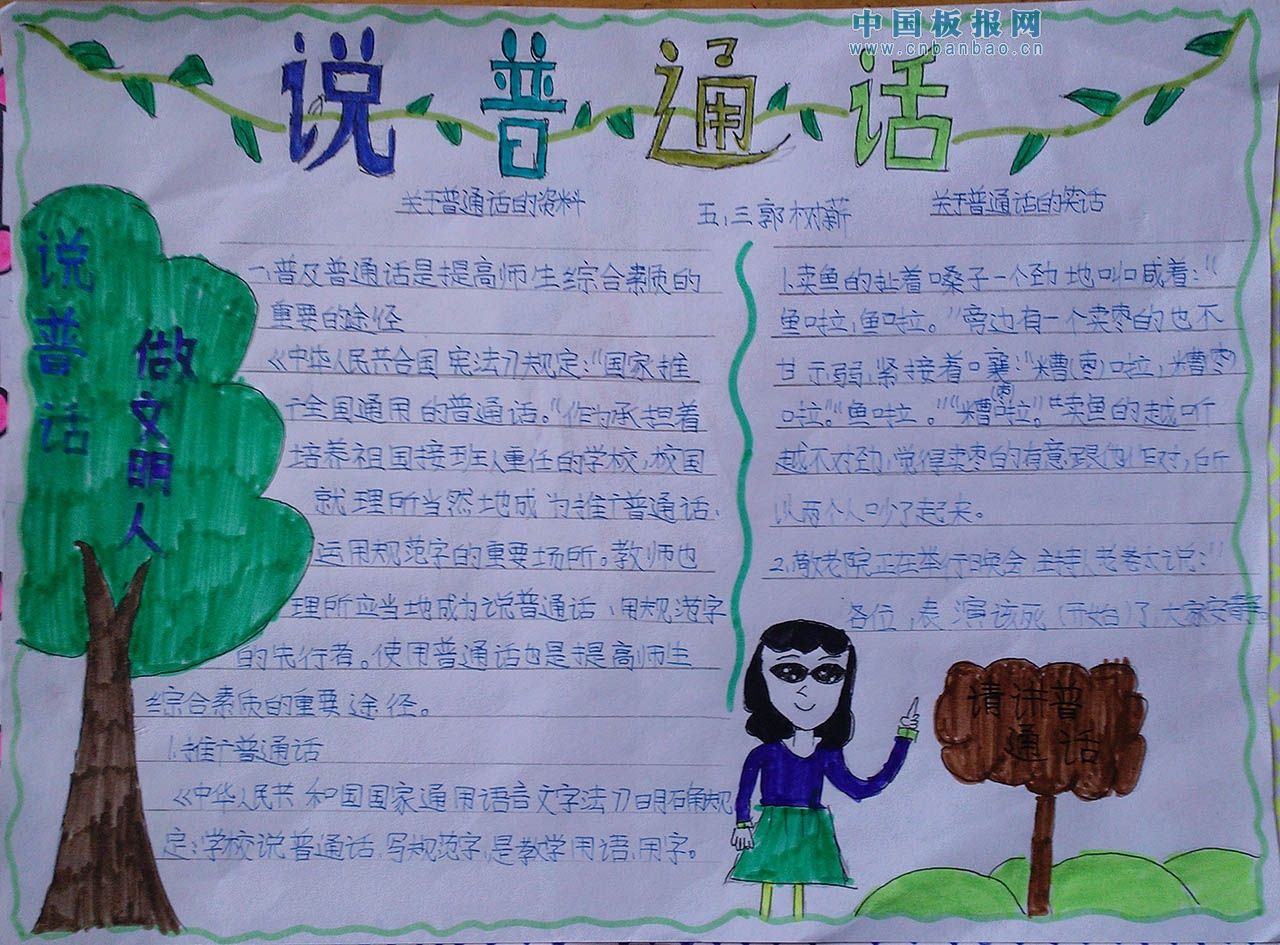 中国板报网
www.cnbanbao.cn
说普通话
关于普通话的资料
五、三郭树薪
关于普通话的笑话
说普话
做文明人
一、普及普通话是提高师生综合素质的
重要的途径
《中华人民共合国宪法》规定:“国家推
广全国通用的普通话。”作为承担着
培养祖国接班人重任的学校,校园
就理所当然地成为推广普通话、
运用规范字的重要场所。教师也
理所应当地成为说普通话、用规范字
的先行者。使用普通话也是提高师生
综合素质的重要途径。
1.推广普通话
《中华人民共和国国家通用语言文字法》明确规
定:学校说普通话,写规范字,是教学用语、用字。
1.卖鱼的扯着嗓子一个劲地叫喊着:“
鱼啦,鱼啦。”旁边有一个卖枣的也不
甘示弱,紧接着嚷:“糟(枣)啦,糟枣
啦。”“鱼啦。”“糟啦。”卖鱼的越听
越不对劲,觉得卖枣的有意跟他作对,所
以两个人吵了起来。
2.敬老院正在举行晚会,主持人老太太说:“
各位,表演该死(开始)了大家安静。
请讲普
通话